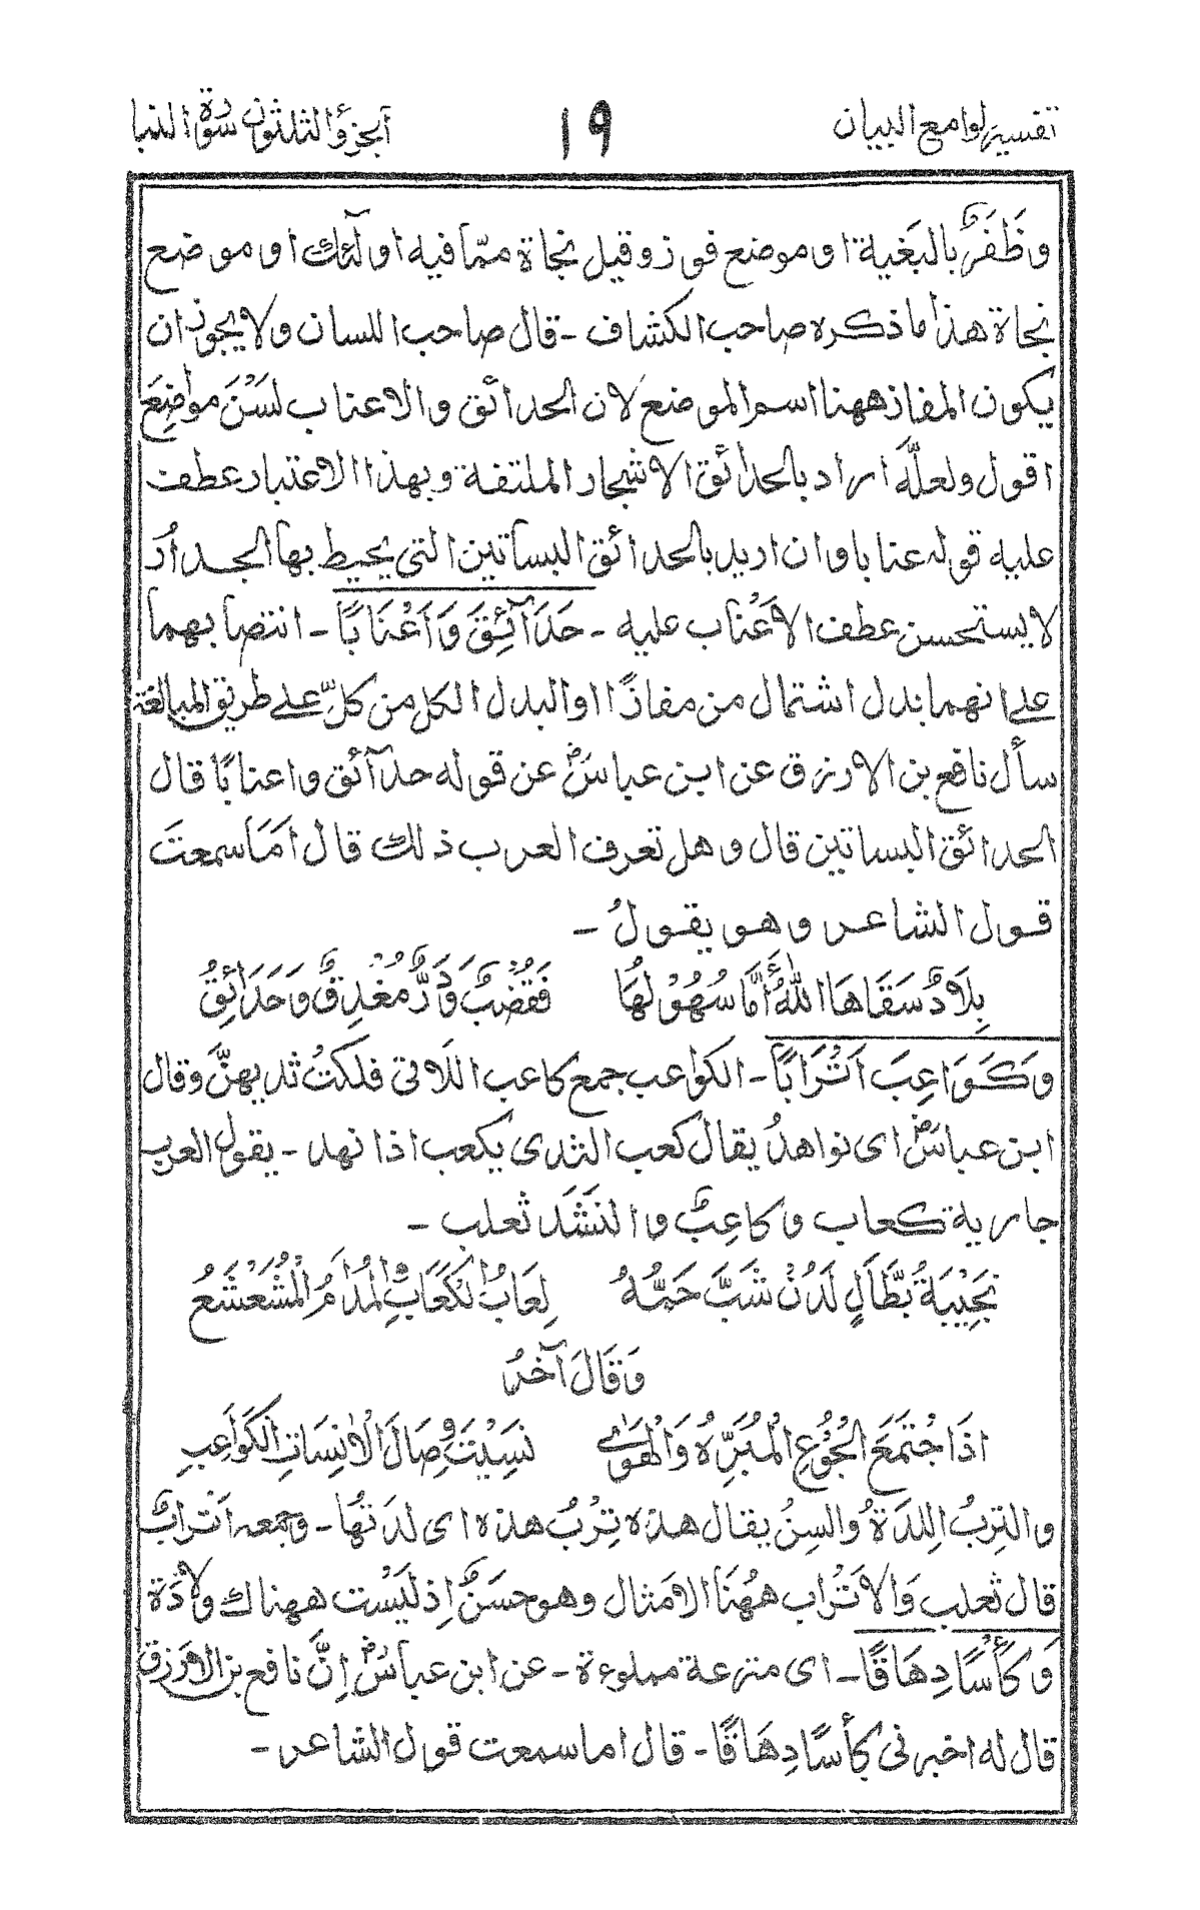 تفسير لوامع البيان
١٩
الجزؤ الثلثون سورة النبا
وظَفَرٌ بالبَغية او موضع فوز وقيل نجاة ممّا فيه اولٰئك او موضع
نجاة هذا ما ذكره صاحب الكشاف - قال صاحب اللسان ولا يجوز ان
يكون المفاز ههنا اسم الموضع لان الحدائق والاعناب لَسْنَ مواضِعَ
اقول ولعلَّه اراد بالحدائق الاشجار الملتفة وبهذا الاعتبار عطف
عليه قوله عنابا وان اريد بالحدائق البساتين التى يحيط بها الجدارُ
لا يستحسن عطف الاَعْنَاب عليه - حَدَآئِقَ وَاَعْنَابًا - انتصابهما
على انهما بدل اشتمال من مفازًا او البدل الكل من كلّ على طريق المبالغة
سأل نافع بن الازرق عن ابن عباسؓ عن قوله حدآئق واعنابًا قال
الحدائق البساتين قال وهل تعرف العرب ذلك قال اَمَا سمعتَ
قول الشاعر وهو يقولُ -
بِلَادٌ سَقَاهَا اللهُ أَمَّا سُهُوْلُهَا فَقُضْبٌ وَدُرٌّ مُغْدِقٌ وَحَدَائِقُ
وَكَوَاعِبَ اَتْرَابًا - الكواعب جمع كاعب اللاتى فلكتْ ثديهنَّ وقال
ابن عباسؓ اى نواهدُ يقال كعب الثدى يكعب اذا نهد - يقول العرب
جارية كعاب وكاعِبٌ وانشَدَ ثعلب -
نَجِيْبَةُ بَطَّالٍ لَدُنْ شَبَّ حَمُّهُ لِعَابُ الْكَعَابِ وَالْمُدَامُ الْمُشَعْشَعُ
وَقَالَ آخرُ
اذَا جْتَمَعَ الْجُوْعُ الْمُبَرِّهُ وَالْهَوٰى نَسِيْتَ وِصَالَ الْاٰنِسَاتِ الْكَوَاعِبِ
والتِربُ اللِدَةُ والسِنُ يقال هذه تِرْبُ هذه اى لدتُها - وجمعه اَتراب
قال ثعلب وَالاَتْراب هٰهُنَا الامثال وهو حسَنٌ اِذ لَيْست ههناك ولادَة
وَكَأْسًا دِهَاقًا - اى مترعة مملوءة - عن ابن عباسؓ اِنَّ نافع بن الازرق
قال له اخبرنى كأسًا دِهَاقًا - قال اما سمعت قول الشاعر -